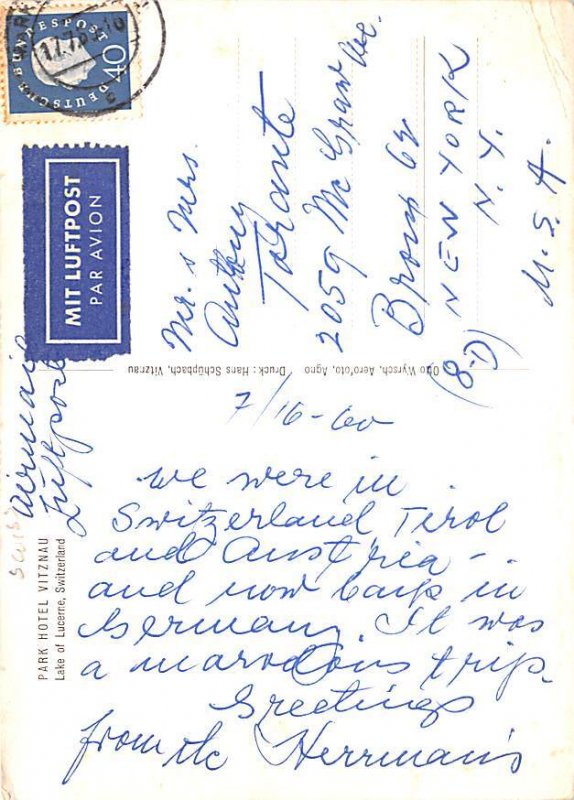 DEUTSCHE BUNDESPOST
40
MIT LUFTPOST
PAR AVION
Airmail
Luftpost
PARK HOTEL VITZNAU
Lake of Lucerne, Switzerland
Otto Wyrsch, Aerofoto, Agno Druck: Hans Schüpbach, Vitznau
Mr. & Mrs.
Anthony
Torante
2059 Mc Graw Ave.
Bronx 62
NEW YORK
N.Y.
(8-D)
U.S.A.
7/16-60
we were in
Switzerland Tirol
and Austria -
and now back in
Germany. It was
a marvelous trip.
Greetings
from the Herrman's